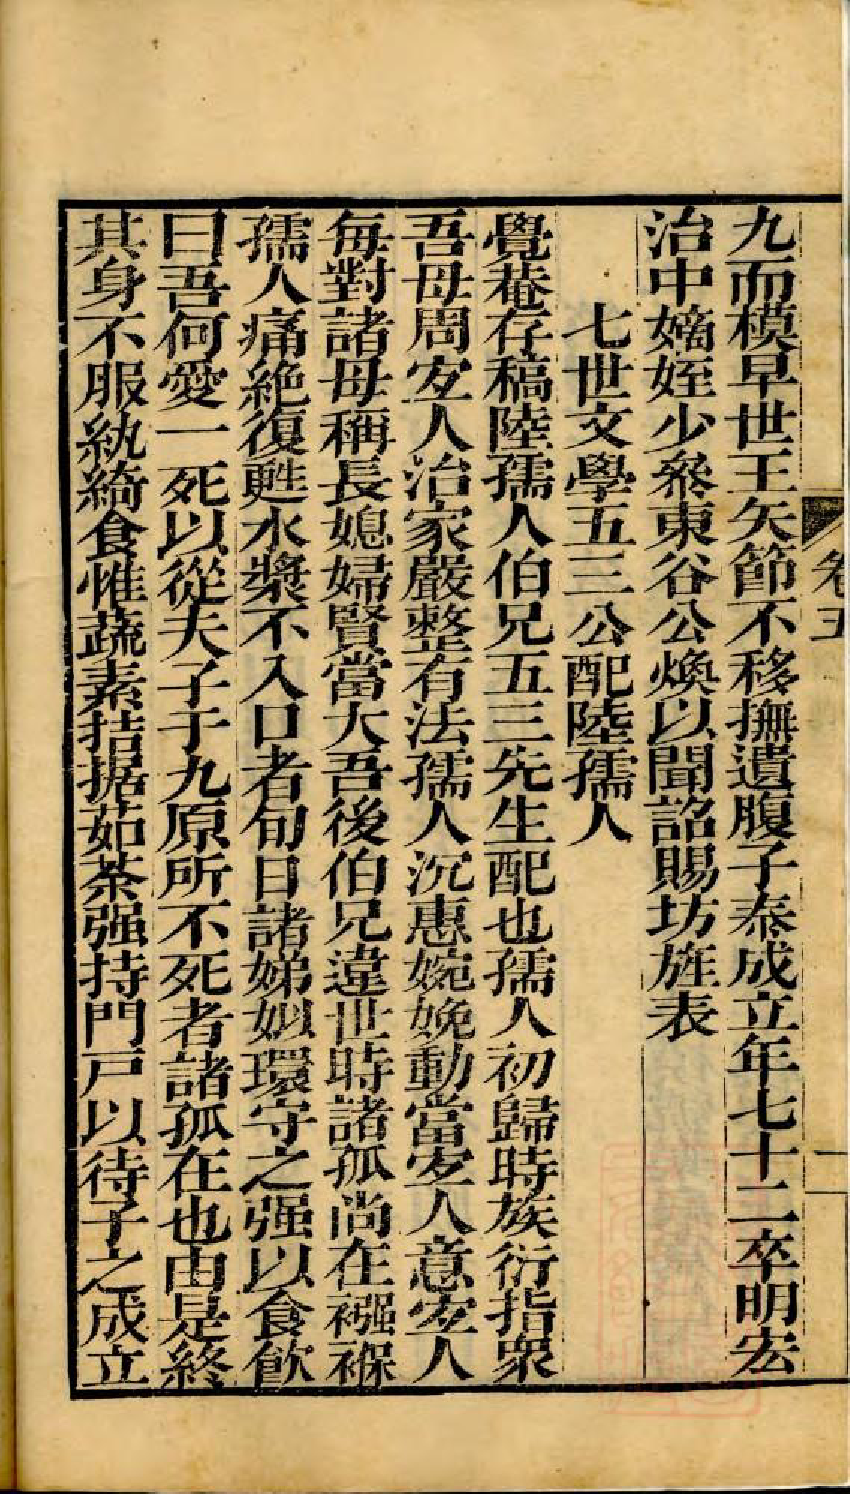 卷五
一
九而模早世王矢節不移撫遺腹子泰成立年七十二卒明宏
治中嫡姪少叅東谷公煥以聞詔賜坊旌表
七世文學五三公配陸孺人
覺菴存稿陸孺人伯兄五三先生配也孺人初歸時族衍指衆
吾母周安人治家嚴整有法孺人沉惠婉娩動當安人意安人
每對諸母稱長媳婦賢當大吾後伯兄違世時諸孤尚在襁褓
孺人痛絶復甦水漿不入口者旬日諸娣姒環守之强以食飮
曰吾何愛一死以從夫子于九原所不死者諸孤在也由是終
其身不服紈綺食惟蔬素拮据茹荼强持門戸以待子之成立